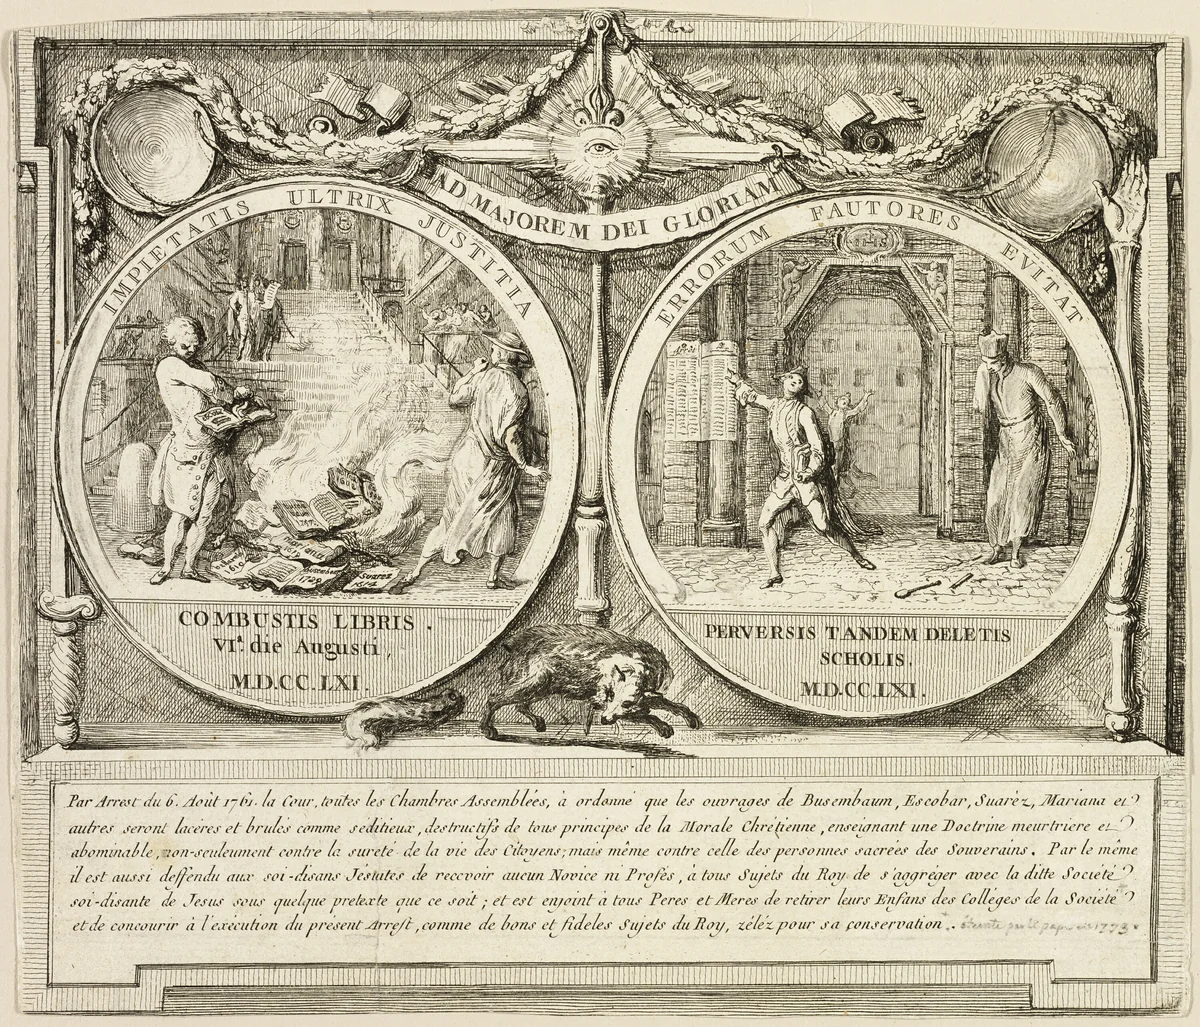 AD MAJOREM DEI GLORIAM
IMPIETATIS ULTRIX JUSTITIA
Suarez
1614
COMBUSTIS LIBRIS.
VI.ª die Augusti,
M.D.CC.LXI.
ERRORUM FAUTORES EVITAT
PERVERSIS TANDEM DELETIS
SCHOLIS.
M.D.CC.LXI.
Par Arrest du 6. Août 1761. la Cour, toutes les Chambres Assemblées, à ordonné que les ouvrages de Busembaum, Escobar, Suarèz, Mariana et
autres seront laceres et brulés comme séditieux, destructifs de tous principes de la Morale Chrétienne, enseignant une Doctrine meurtriere et
abominable, non-seuleument contre la sureté de la vie des Citoyens; mais même contre celle des personnes sacrées des Souverains. Par le même
il est aussi deffendu aux soi-disans Jesuites de recevoir aucun Novice ni Profès, à tous Sujets du Roy de s'aggréger avec la ditte Société
soi-disante de Jesus sous quelque pretexte que ce soit; et est enjoint à tous Peres et Meres de retirer leurs Enfans des Colléges de la Société
et de concourir à l'exécution du présent Arrest, comme de bons et fideles Sujets du Roy, zéléz pour sa conservation. par le pape en 1773